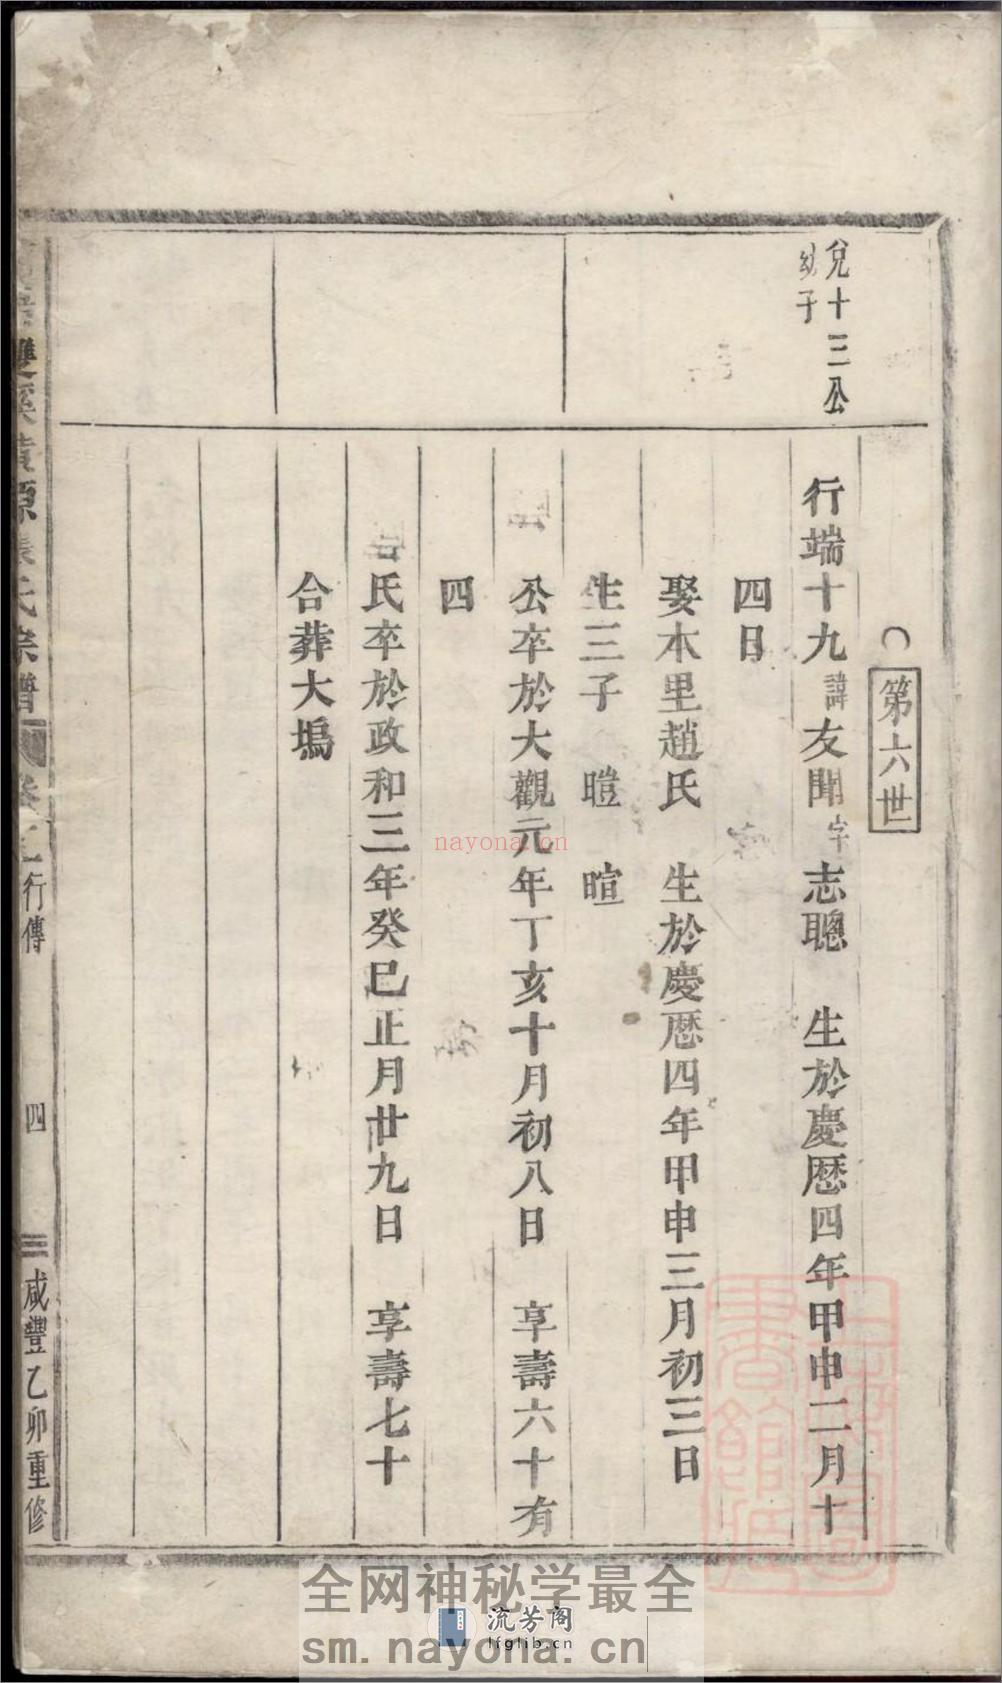 第六世
兌十三公
幼子
行端十九諱友聞字志聰　生於慶厯四年甲申二月十
四日
娶木里趙氏　生於慶厯四年甲申三月初三日
生三子　暟　暄
公卒於大觀元年丁亥十月初八日　享壽六十有
四
氏卒於政和三年癸巳正月廿九日　享壽七十
合葬大塢
雙溪黃源氏宗譜
行傳
四
咸豐乙卯重修
nayona.cn
全网神秘学最全
流芳阁
lfglib.cn
sm.nayona.cn